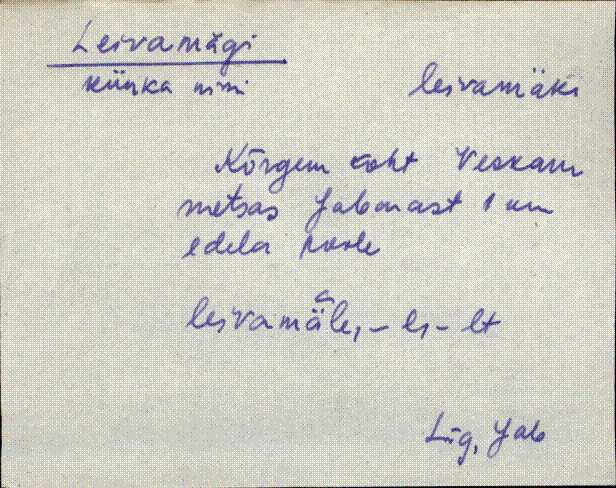 Leivamägi
künka nimi
leivamäki
Kõrgem koht
metsas Jabonast 1 km
edela poole
leivamäle, – ls – lt
Lüg, Jab